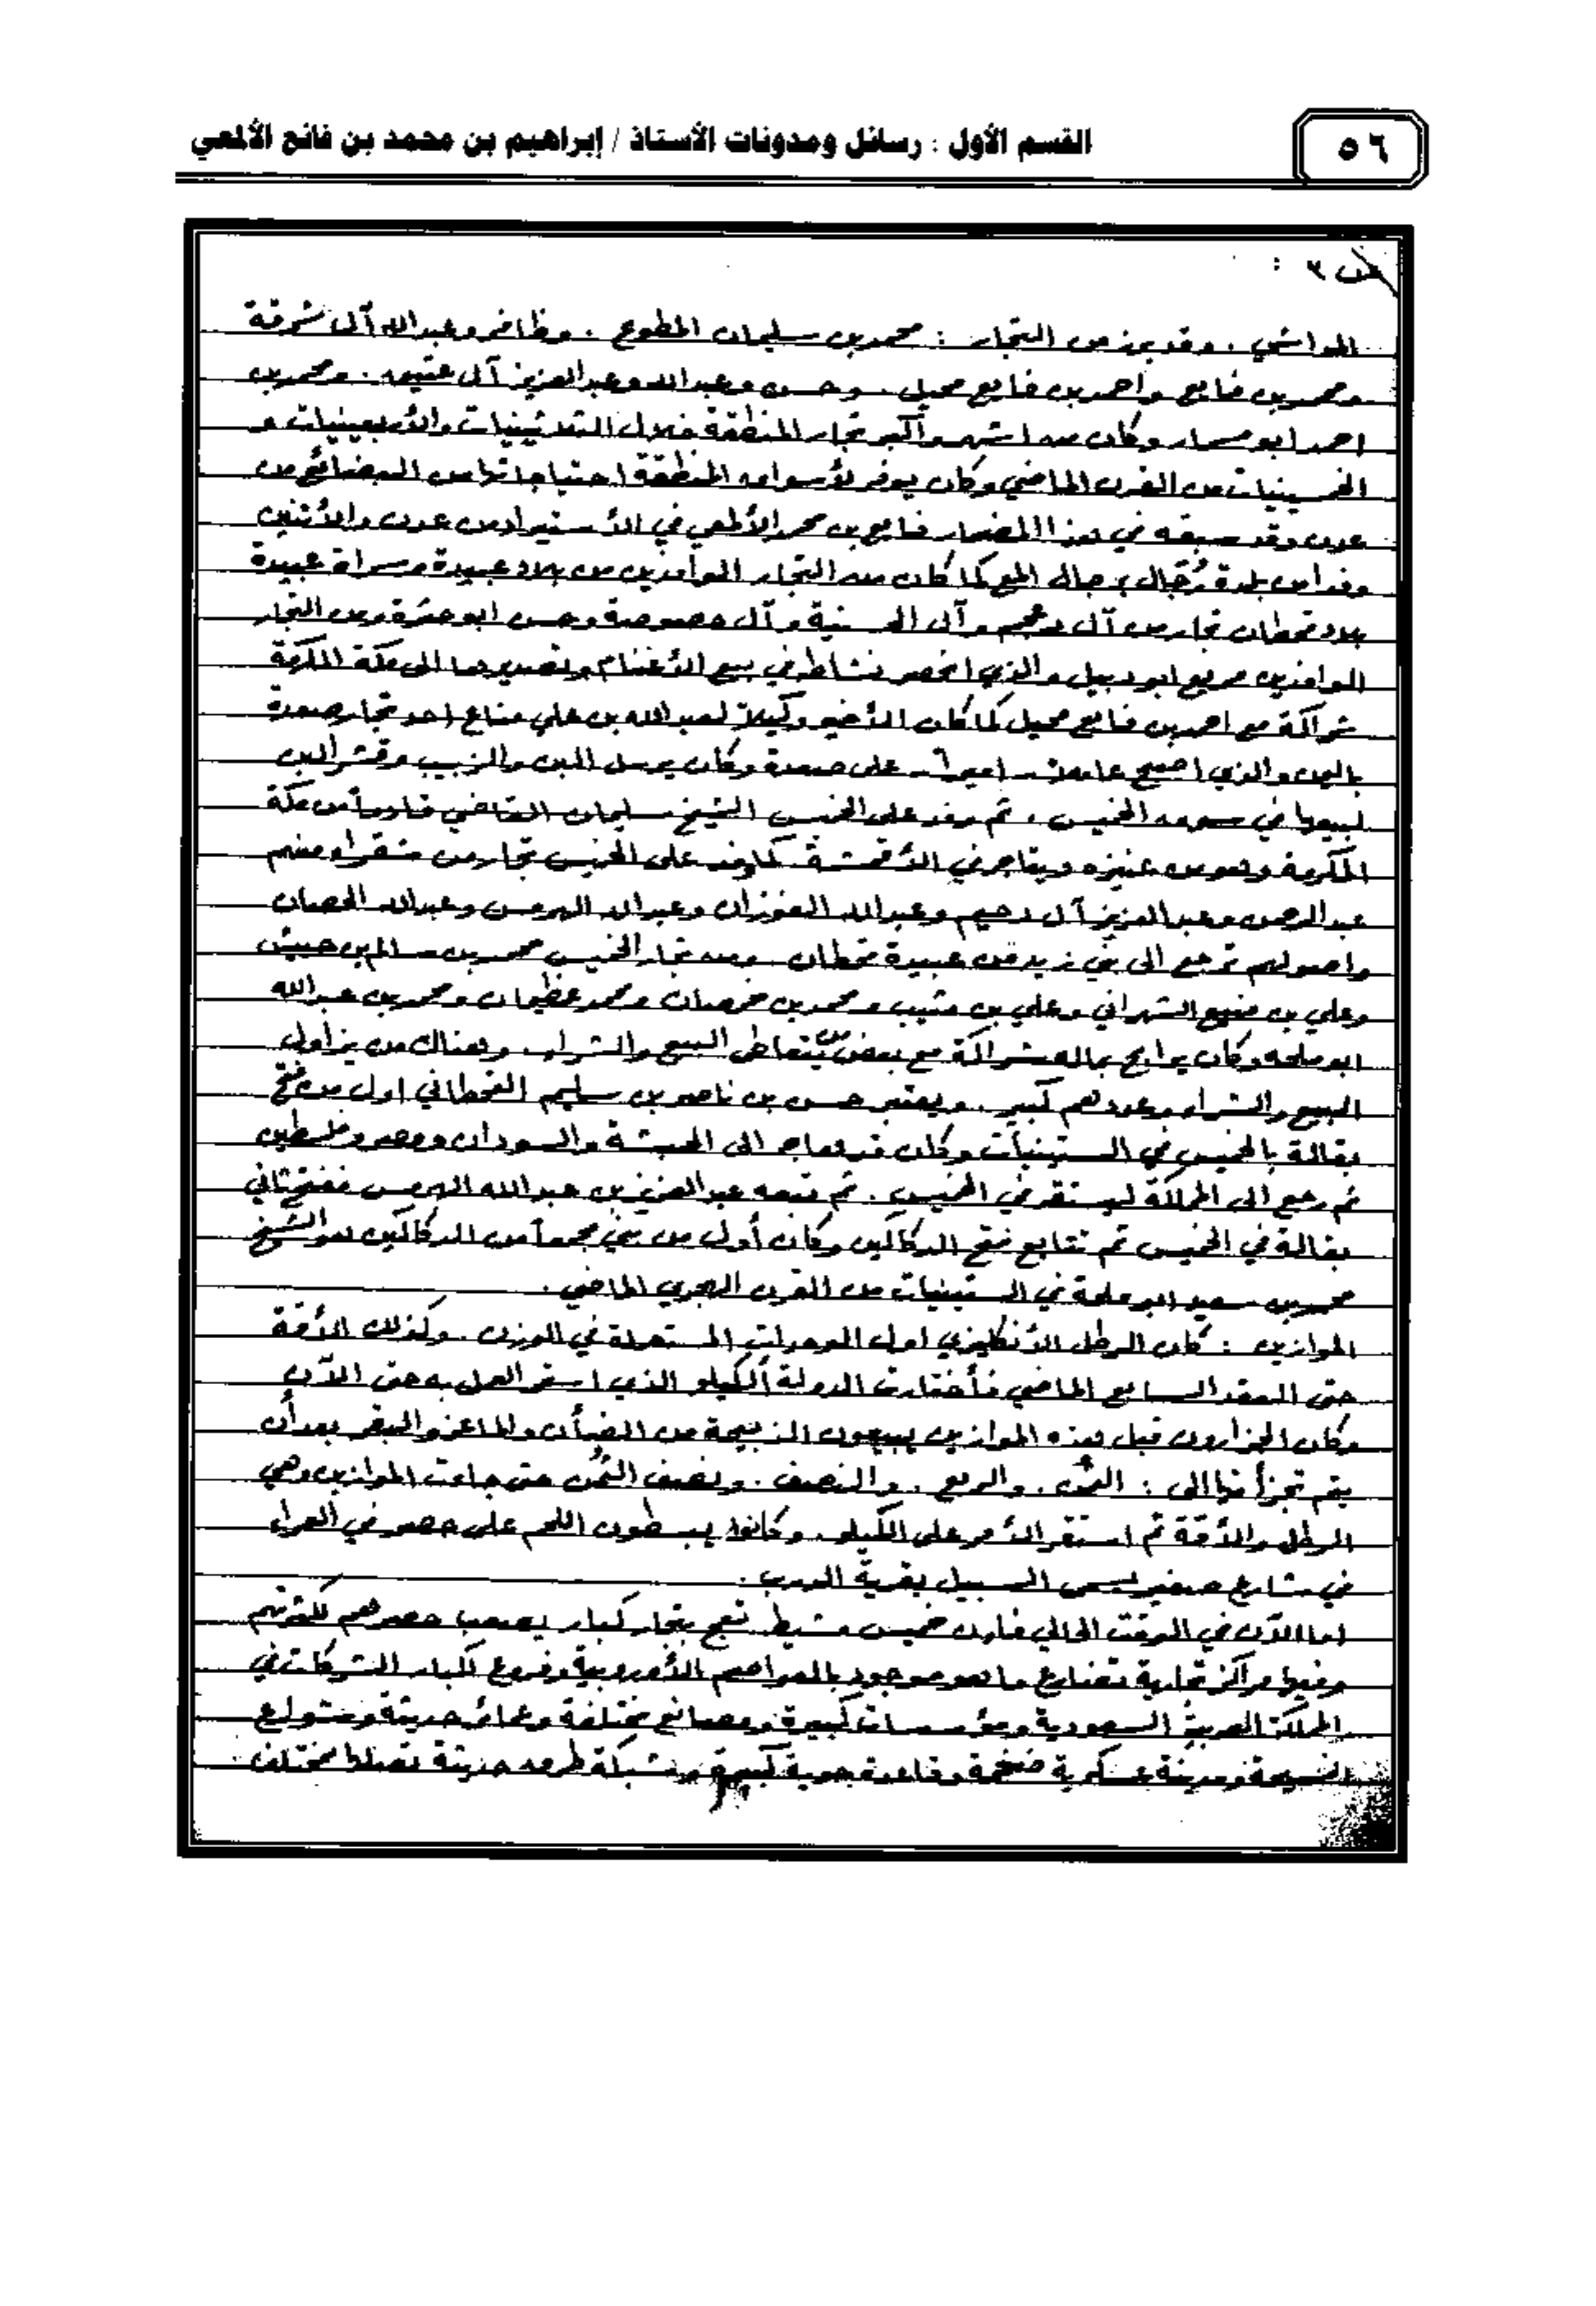 ٥٦
القسم الأول : رسائل ومدونات الأستاذ / إبراهيم بن محمد بن فائع الألمعي
ص ٣ :
المواشي . وقد برز من التجار : محمد بن سليمان المطوع . وظافر وعبدالله آل شرقة
ومحمد بن فايع واحمد بن فايع محيل . وحسن وعبدالله وعبدالعزيز آل عتيق . ومحمد بن
احمد ابو مسمار وكان من اشهر وأكبر تجار المنطقة خلال الثلاثينيات والأربعينيات و
الخمسينيات من القرن الماضي وكان يوفر لأسواق المنطقة احتياجاتها من البضائع من
عدن وقد سبقه في هذا المضمار فايع بن محمد الألمعي في الأستيراد من عدن والأثنين
وفدا من بلدة رُجَال برجال المع كما كان من التجار الوافدين من بلاد عبيدة وسراة عبيدة
بلاد قحطان تجار من آل وآل الحسنية وآل وحسن ابو وبن التجار
الوافدين مريع ابو دبيل والذي انحصر نشاطه في بيع الأغنام وتصديرها الى مكة المكرمة
شراكة مع احمد بن فايع محيل كما كان الأخير وكيلاً لعبدالله بن علي مناع احد تجار صعدة
باليمن والذي اصبح عاملاً - اميراً - على صعدة وكان يرسل البن والزبيب وقشر البن
لبيعها في سوق الخميس . ثم وفد على الخميس الشيخ سليمان القاضي قادماً من مكة
المكرمة وهو من عنيزه ويتاجر في الأقمشة . كما وفد على الخميس تجار من شقراء منهم
عبدالرحمن وعبدالعزيز آل دحيم وعبدالله الفوزان وعبدالله الهرمس وعبدالله الحصان
واصولهم ترجع الى بني زيد من عبيدة قحطان . ومن تجار الخميس محمد بن سالم بن حبيش
وعلي بن منيع الشهراني وعلي بن مشبب ومحمد بن خرصان ومحمد عظيمان ومحمد بن عبدالله
ابو ملحه وكان يرابح بماله شراكة مع بعض من يتعاطى البيع والشراء . وهناك من يزاول
البيع والشراء وعددهم كبير . ويعتبر حسن بن ناصر بن سليم القحطاني اول من فتح
بقالة بالخميس في الستينيات وكان قد هاجر الى الحبشة والسودان ومصر وفلسطين
ثم رجع الى المملكة ليستقر في الخميس . ثم تبعه عبدالعزيز بن عبدالله الهرمس ففتح ثاني
بقالة في الخميس ثم تتابع فتح الدكاكين وكان أول من بنى مجمعاً من الدكاكين هو الشيخ
محمد بن سعيد ابو ملحة في الستينيات من القرن الهجري الماضي .
الموازين : كان الرطل الأنكليزي اول الوحدات المستعملة في الوزن . وكذلك الأقة
حتى العقد السابع الماضي فأختارت الدولة الكيلو الذي استمر العمل به حتى الآن
وكان الجزارون قبل هذه الموازين يبيعون الذبيحة من الضأن والماعز والبقر بعد أن
يتم تجزأتها الى : الثمن . والربع . والنصف . ونصف الثُمن حتى جاءت الموازين وهي
الرطل والأقة ثم استقر الأمر على الكيلو . وكانوا يبسطون اللحم على حصر في العراء
في شارع صغير يسمى السبيل بقرية الدرب .
اما الآن في الوقت الحالي فإن خميس مشيط تعج بتجار كبار يصعب حصرهم لكثرتهم
وفيها مراكز تجارية تضارع ما هو موجود بالعواصم الأوروبية وفروع لكبار الشركات في
المملكة العربية السعودية ومؤسسات كبيرة ومصانع مختلفة وعمائر حديثة وشوارع
فسيحة ومدينة عسكرية ضخمة وقاعدة جوية كبيرة وشبكة طرق حديثة تصلها بمختلف